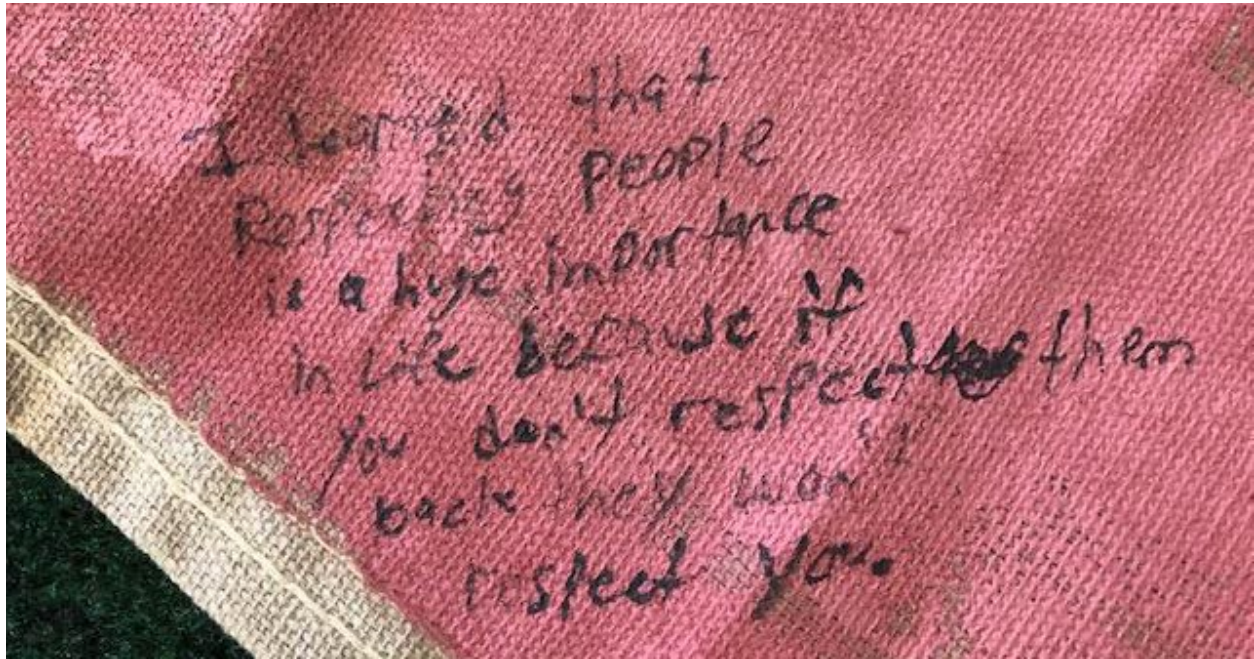 I Learned that
Respecting people
is a huge importance
in Life because if
you don't respect them
back they won't
respect you.